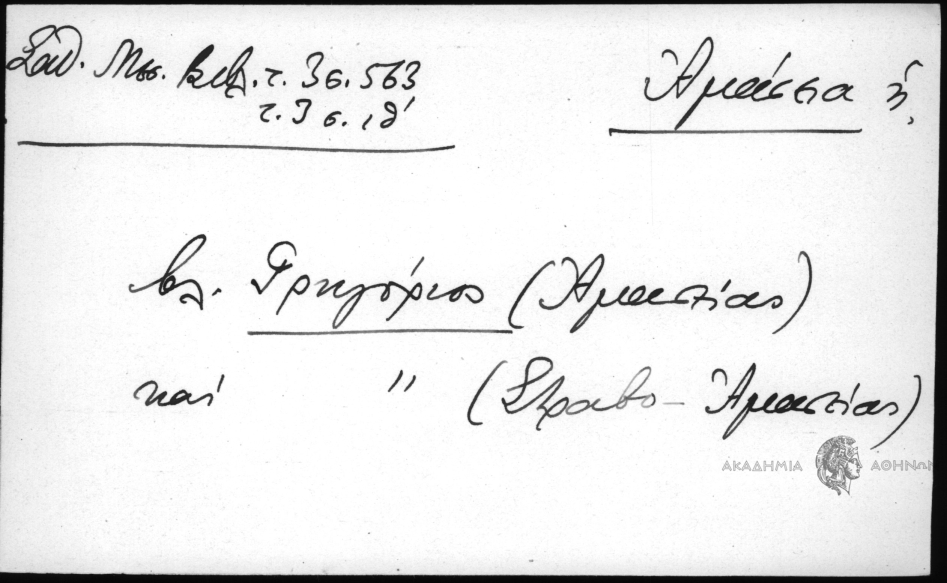 Σαθ. Μεσ. Βιβλ. τ. 3 σ. 563
τ. 3 σ. ιθ'
Ἀμάσεια ἡ,
βλ. Γρηγόριος (Ἀμασείας)
καὶ " (Στραβο - Ἀμασείας)
ΑΚΑΔΗΜΙΑ ΑΘΗΝΩΝ